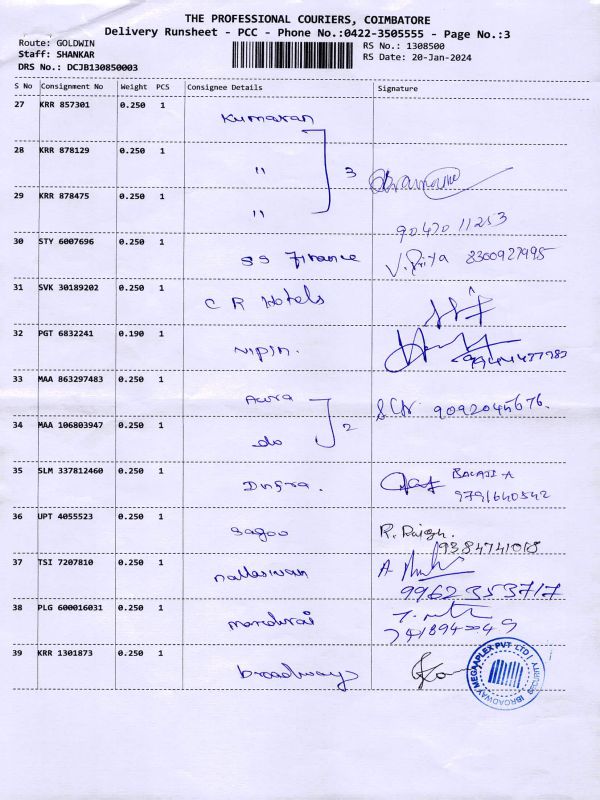 THE PROFESSIONAL COURIERS, COIMBATORE
Delivery Runsheet - PCC - Phone No.:0422-3505555 - Page No.:3
Route: GOLDWIN
RS No.: 1308500
Staff: SHANKAR
RS Date: 20-Jan-2024
DRS No.: DCJB130850003
S No Consignment No Weight PCS Consignee Details Signature
27 KRR 857301 0.250 1 Kumaran
28 KRR 878129 0.250 1 " 3
29 KRR 878475 0.250 1 "
90470 11253
30 STY 6007696 0.250 1 SS Finance V. Priya 8300927995
31 SVK 30189202 0.250 1 C R Hotels
32 PGT 6832241 0.190 1 Nipin.
33 MAA 863297483 0.250 1 Aura 9092045676.
34 MAA 106803947 0.250 1 do 2
35 SLM 337812460 0.250 1 BALAJI A
9791640542
36 UPT 4055523 0.250 1 Sagoo R.
9384741018
37 TSI 7207810 0.250 1 nallaswan A
9962353717
38 PLG 600016031 0.250 1
39 KRR 1301873 0.250 1 broadways
BROADWAY MEGAAPLEX PVT LTD
SECURITY